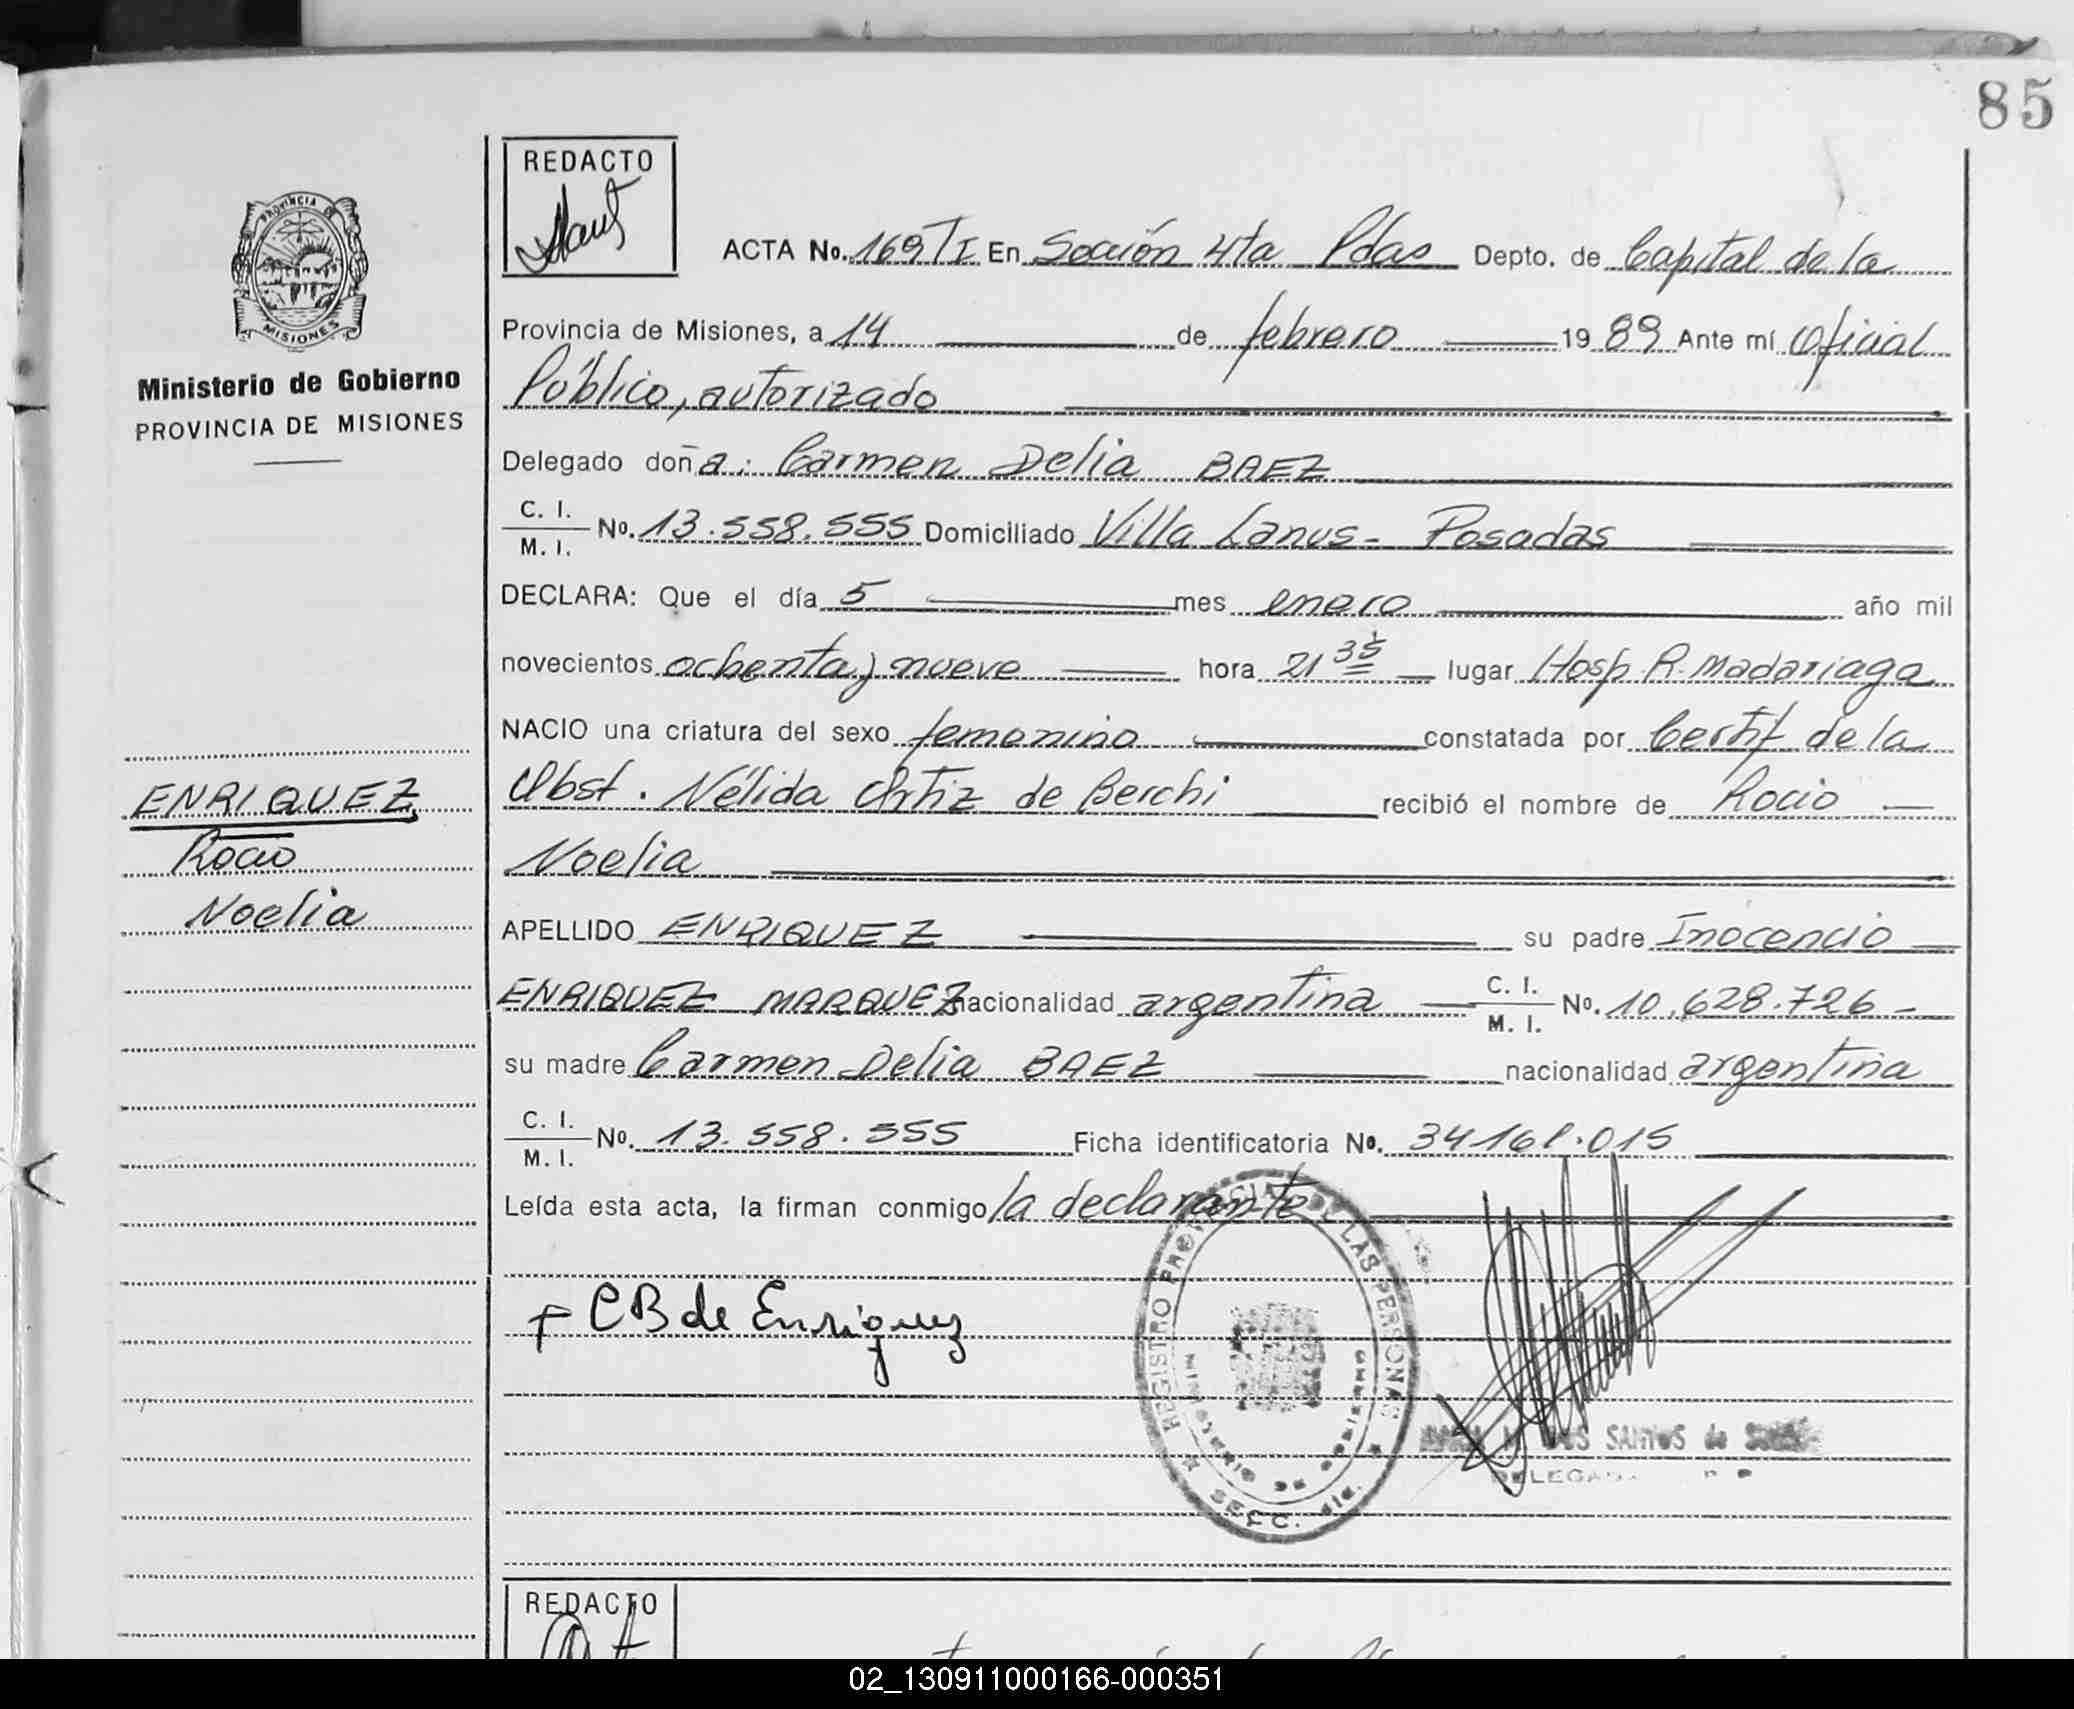 85
REDACTO
PROVINCIA DE
MISIONES
Ministerio de Gobierno
PROVINCIA DE MISIONES
ACTA No. 169 T I En Sección 4ta Pdas Depto. de Capital de la
Provincia de Misiones, a 14 de febrero 1989 Ante mí Oficial
Público, autorizado
Delegado doña: Carmen Delia BAEZ
C. I.
M. I. No. 13.558.555 Domiciliado Villa Lanus - Posadas
DECLARA: Que el día 5 mes enero año mil
novecientos ochenta y nueve hora 21 35 lugar Hosp R. Madariaga
NACIO una criatura del sexo femenino constatada por Certif de la
Obst. Nélida Ortiz de Berchi recibió el nombre de Rocio
Noelia
APELLIDO ENRIQUEZ su padre Inocencio
ENRIQUEZ MARQUEZ nacionalidad argentina C. I.
M. I. No. 10.628.726 -
su madre Carmen Delia BAEZ nacionalidad argentina
C. I.
M. I. No. 13.558.555 Ficha identificatoria No. 34161.015
Leída esta acta, la firman conmigo la declarante
ENRIQUEZ,
Rocio
Noelia
+ CB de Enriquez
REGISTRO PROVINCIAL DE LAS PERSONAS
MINISTERIO DE GOBIERNO
SECC. 4ta.
DOS SANTOS de
DELEGADA
REDACTO
02_130911000166-000351